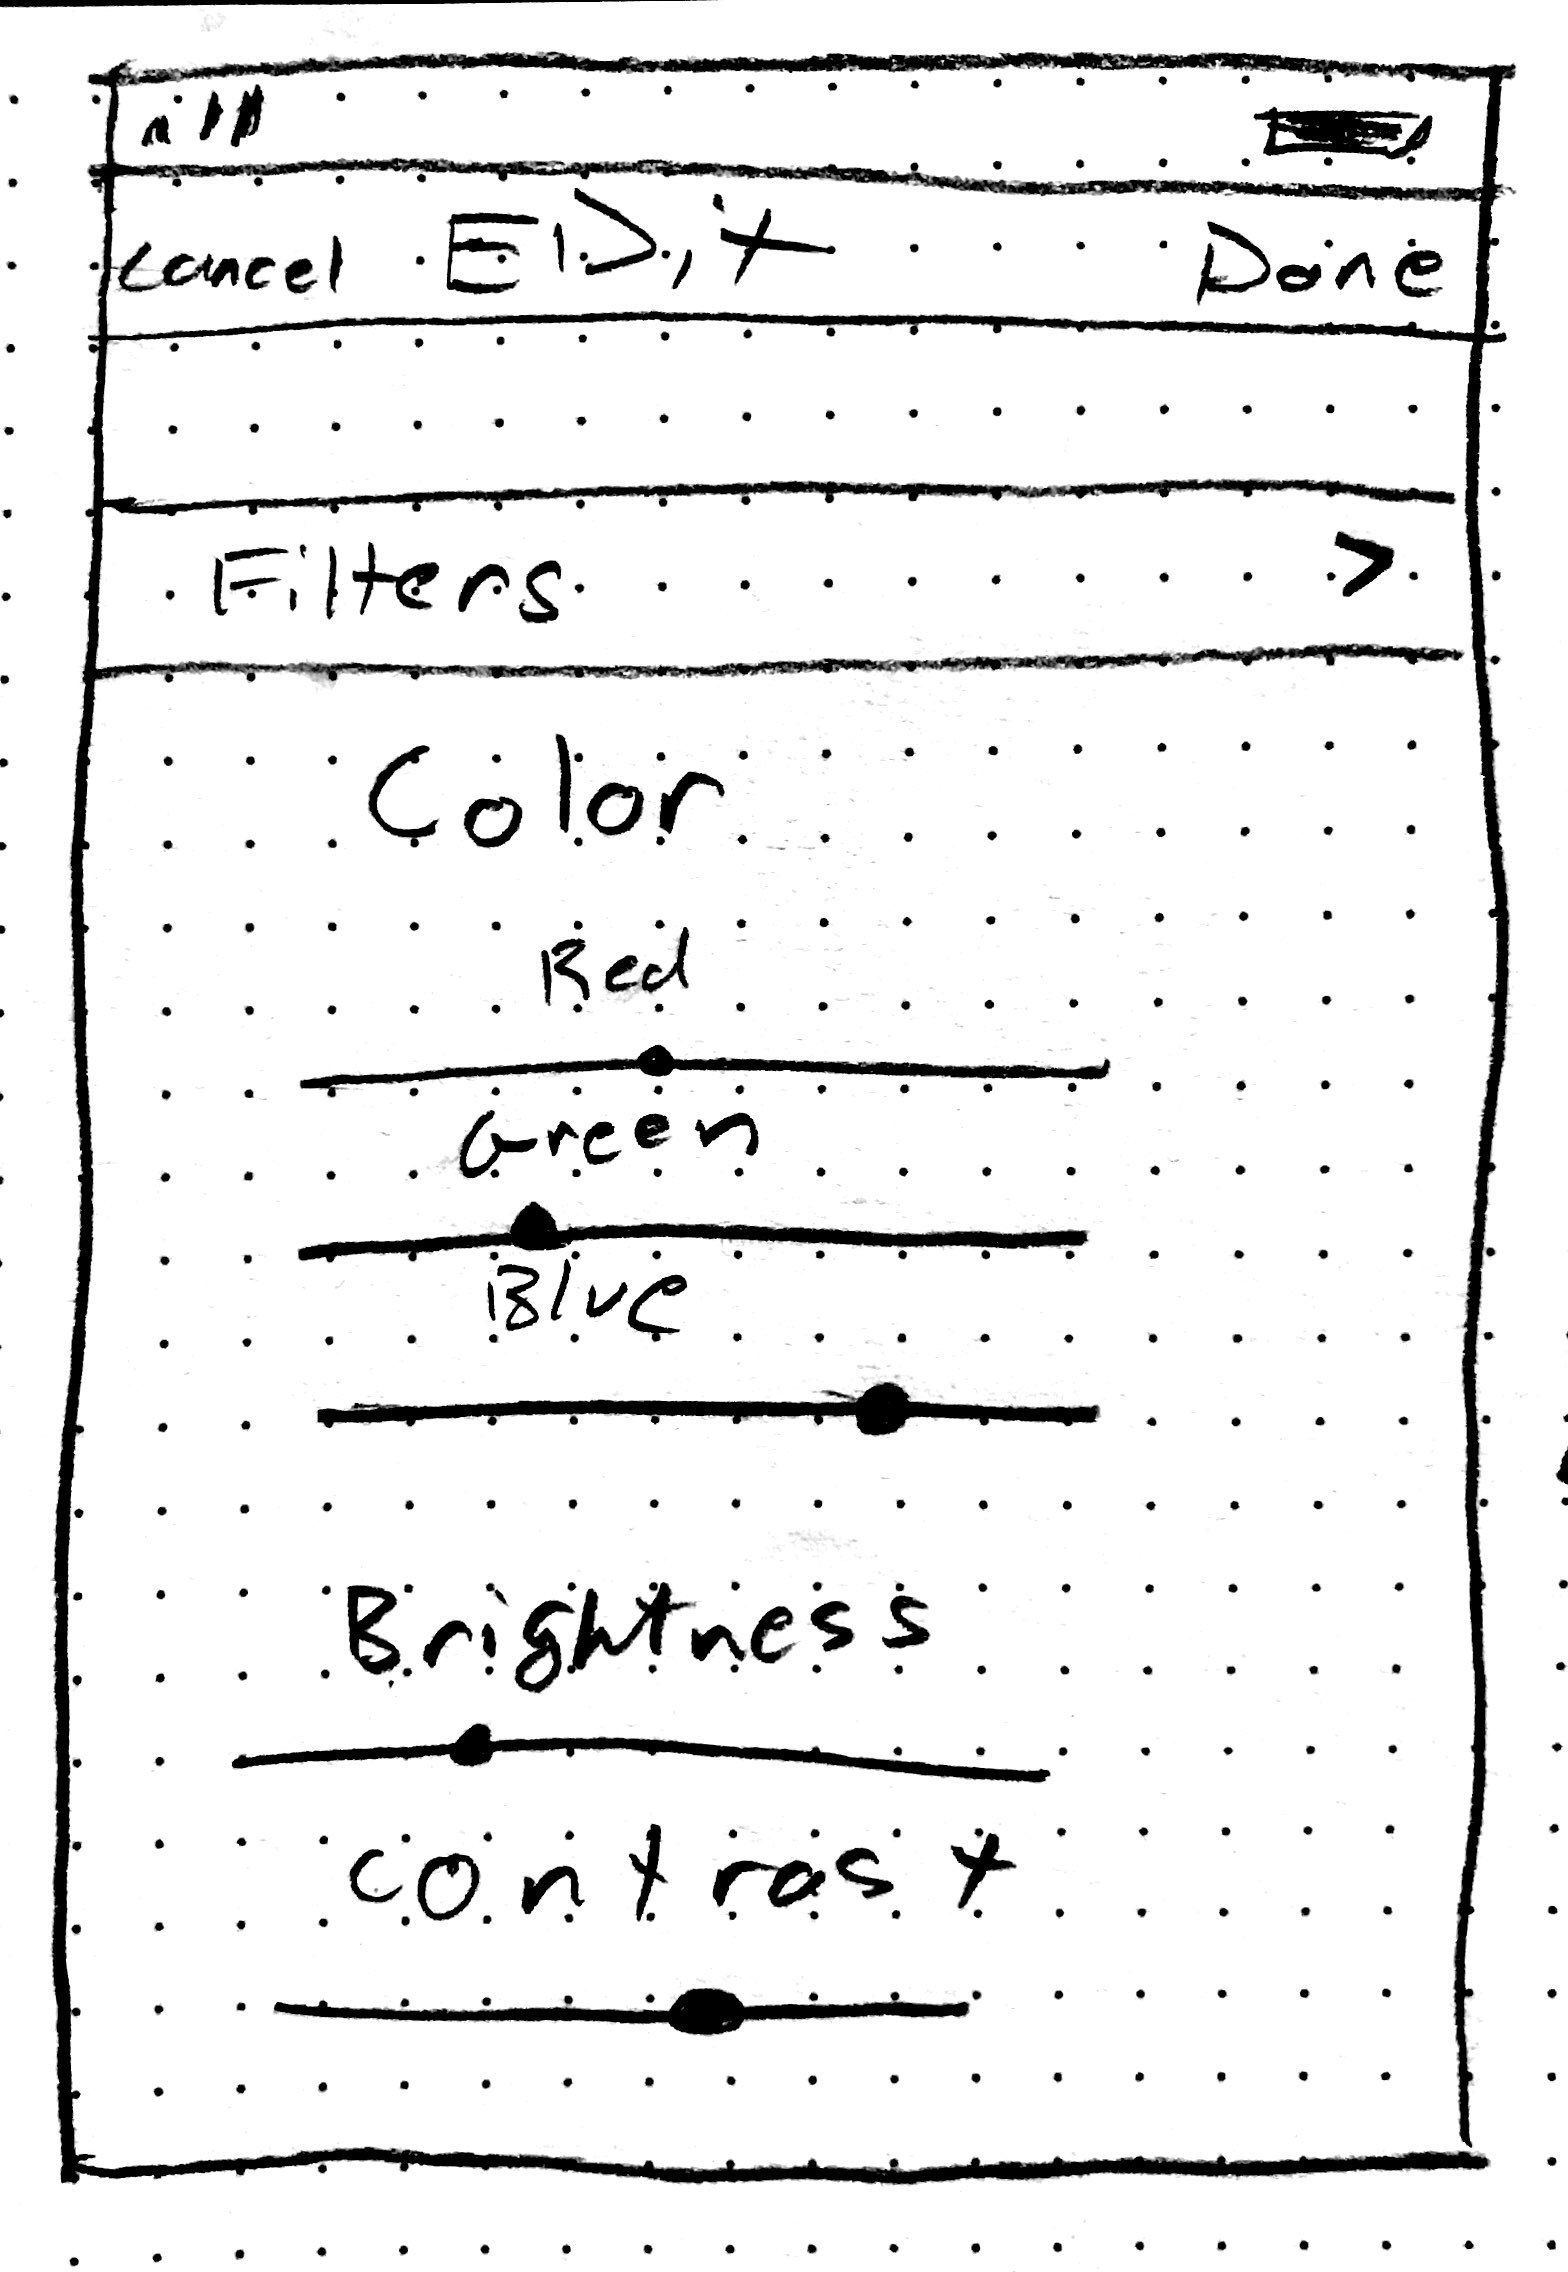 Cancel EDit Done
Filters >
Color
Red
Green
Blue
Brightness
contrast